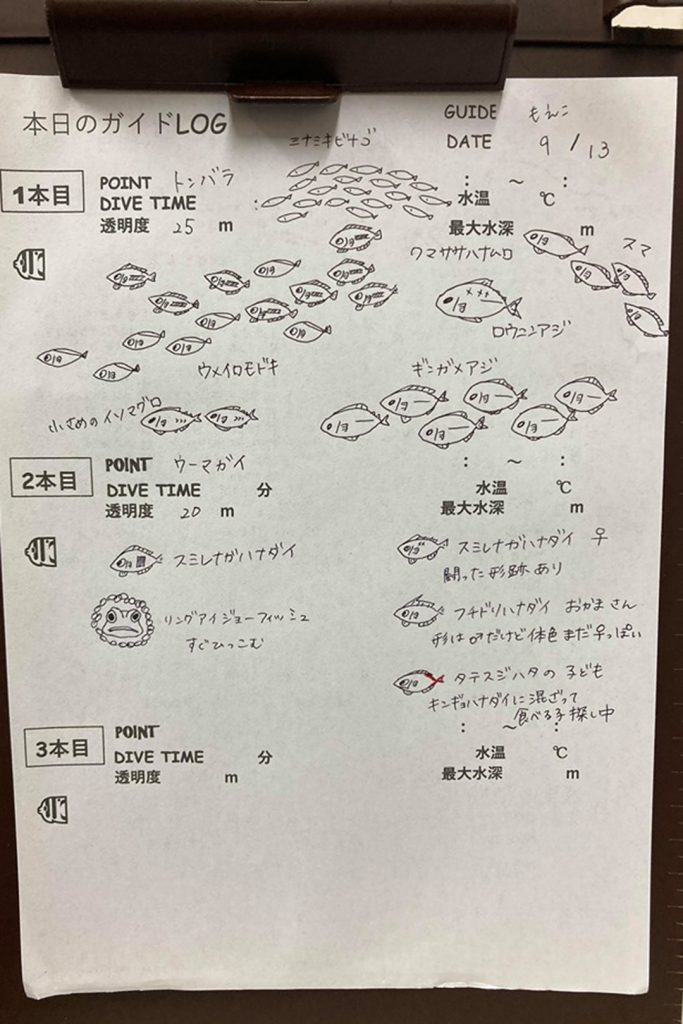 本日のガイドLOG
GUIDE もえこ
DATE 9 / 13
ミナミキビナゴ
1本目
POINT トンバラ
DIVE TIME :
: ～ :
水温 ℃
透明度 25 m
最大水深 m
クマササハナムロ
スマ
ロウニンアジ
ウメイロモドキ
ギンガメアジ
小さめのイソマグロ
2本目
POINT ウーマガイ
: ～ :
DIVE TIME 分
水温 ℃
透明度 20 m
最大水深 m
スミレナガハナダイ
スミレナガハナダイ ♀
闘った形跡あり
リングアイジョーフィッシュ
すぐひっこむ
フチドリハナダイ おかまさん
形は♂だけど体色まだ♀っぽい
タテスジハタの子ども
キンギョハナダイに混ざって
食べる子探し中
3本目
POINT
: ～ :
DIVE TIME 分
水温 ℃
透明度 m
最大水深 m